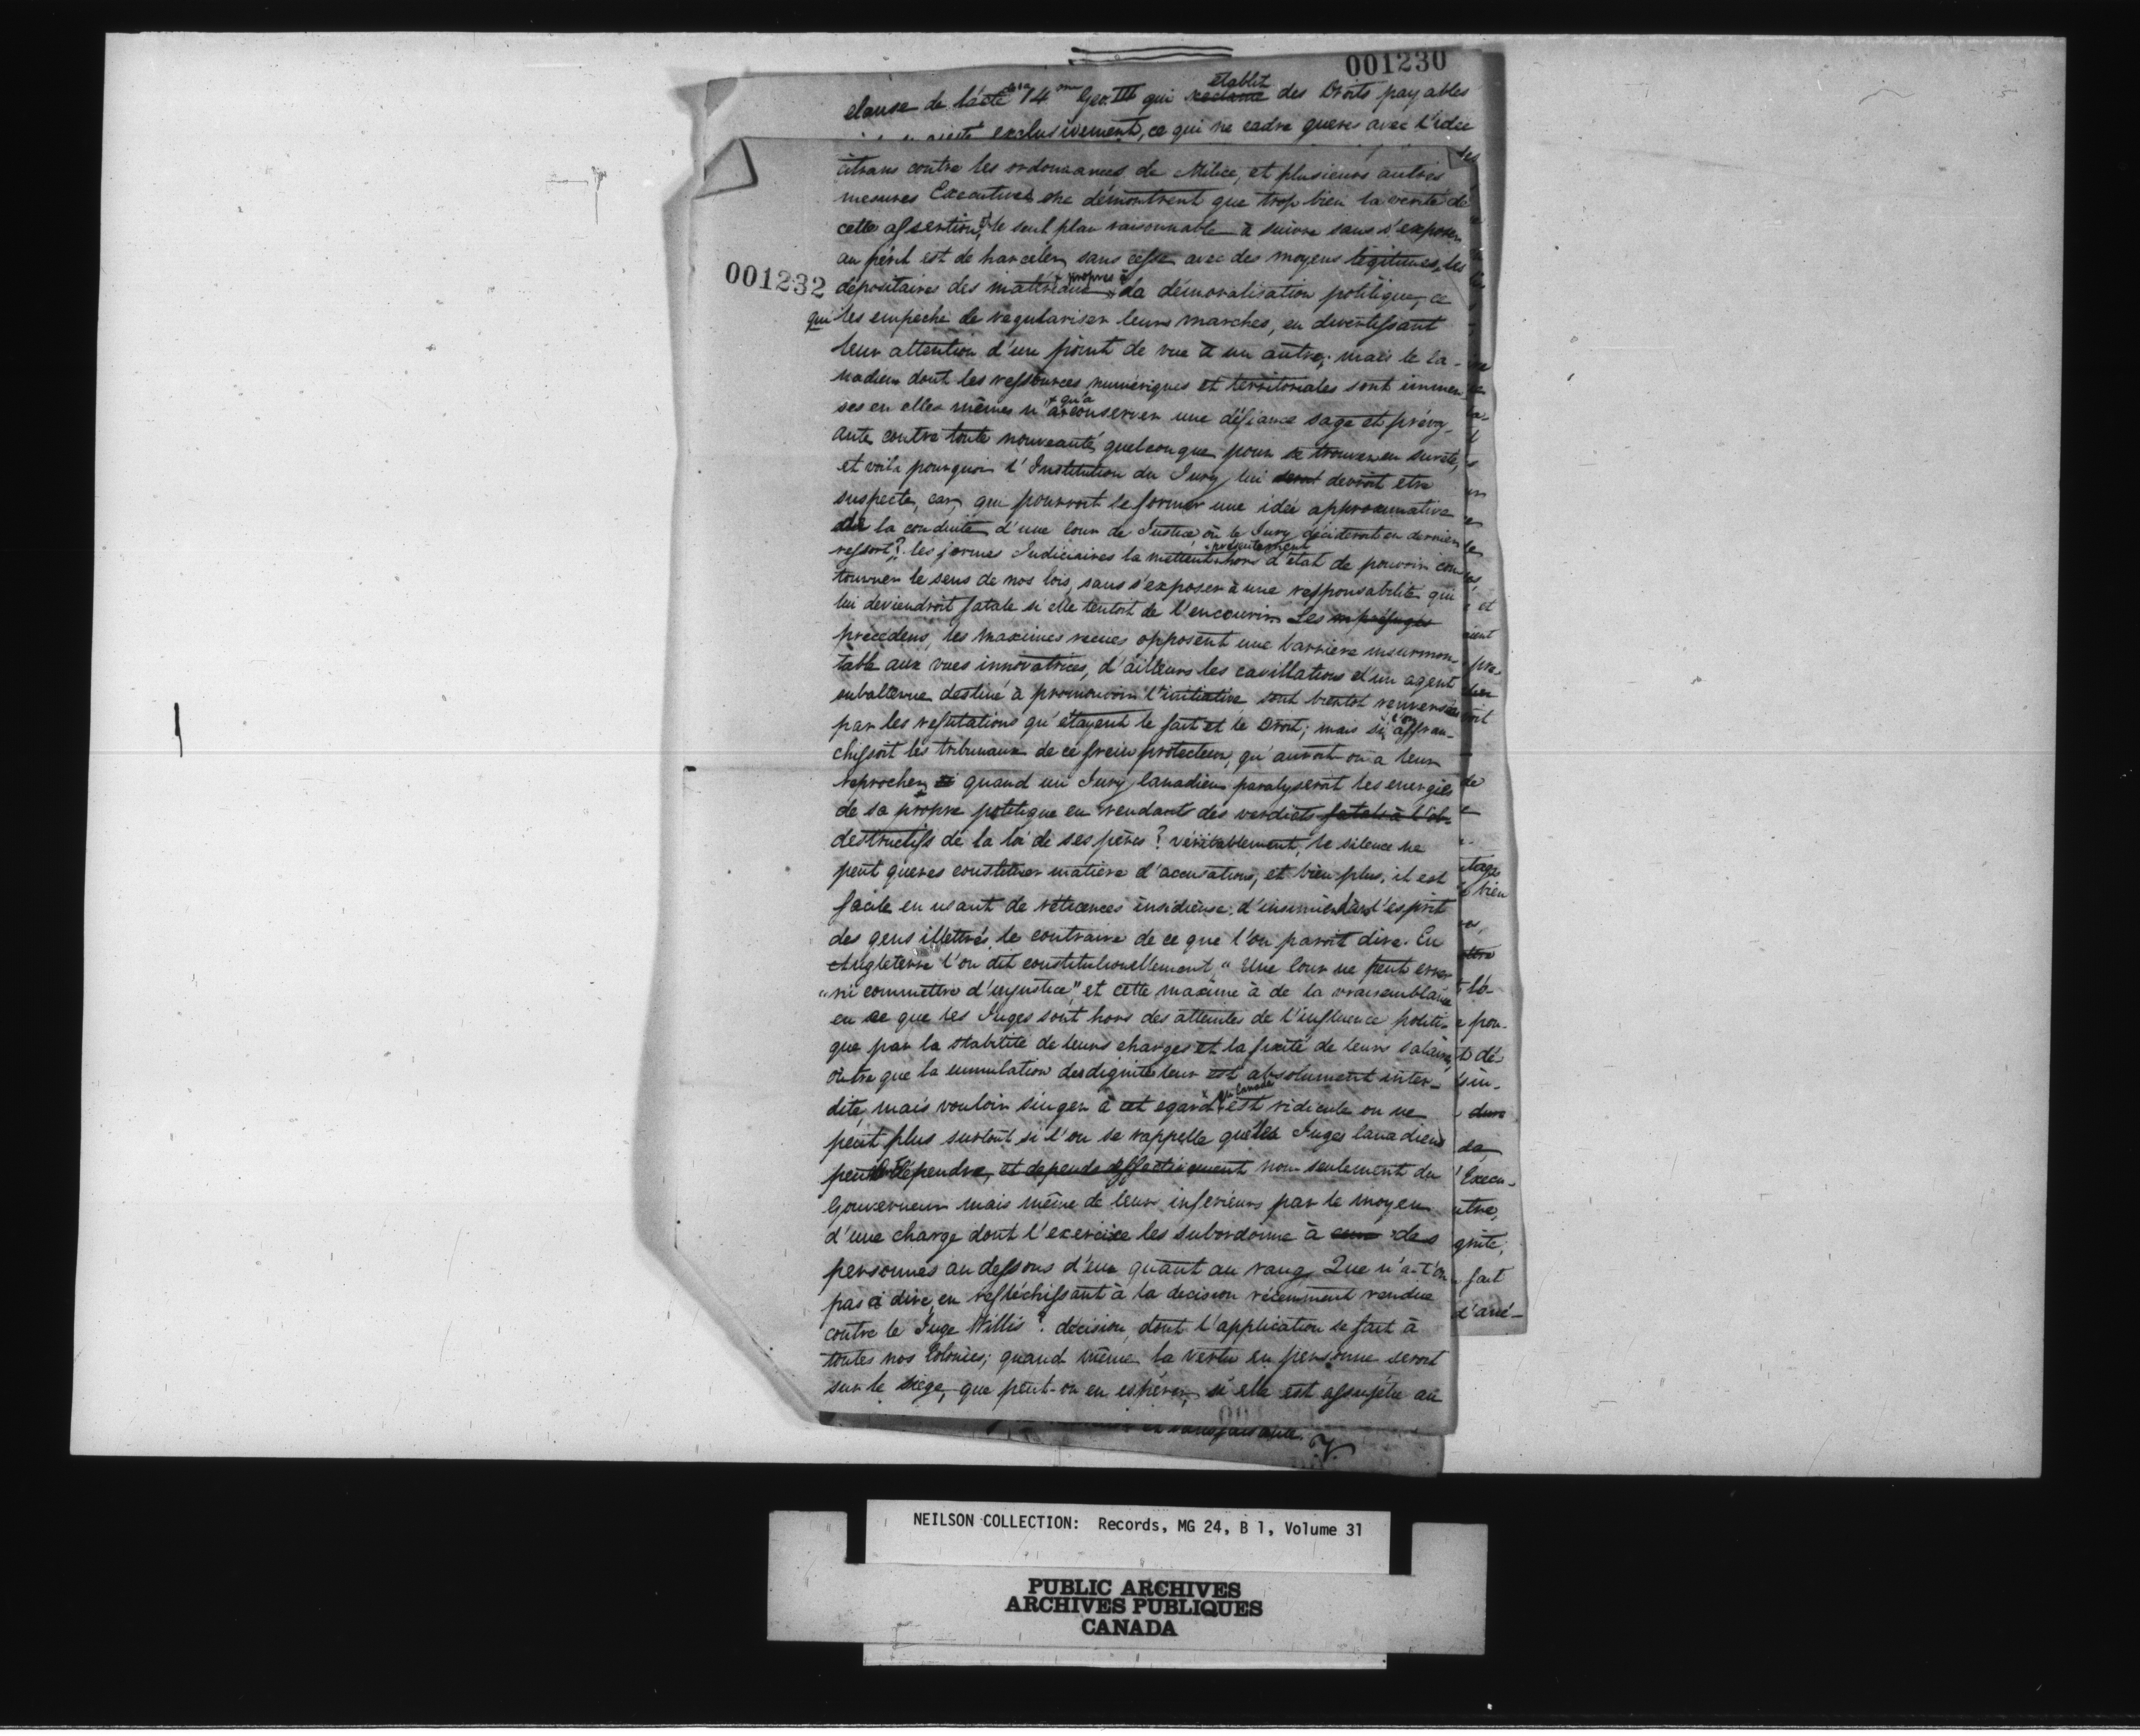 001230
clause de l'acte de la 14me Geo. III qui reclame établit des Droits payables
exclusivement, ce qui ne cadre gueres avec l'idée
citrans contre les ordonnances de Milice, et plusieurs autres
mesures Executives ne démontrent que trop bien la verité de
cette assertion, le seul plan raisonnable à suivre sans s'exposer
au péril est de harceler sans cesse avec des moyens légitimes, les
001232
dépositaires des matériaux propres à la démoralisation politique, ce
qui les empeche de regulariser leurs marches, en divertissant
leur attention d'un point de vue à un autre; mais le Ca-
nadien dont les ressources numériques et territoriales sont immen-
ses en elles mêmes n'a qu'à conserver une défiance sage et prévoy-
ante contre toute nouveauté quelconque pour se trouver en sureté,
et voila pourquoi l'Institution du Jury lui devroit etre
suspecte, car, qui pourroit se former une idée approximative
de la conduite d'une Cour de Justice où le Jury décideroit en dernier
ressort? les formes Judiciaires la mettent présentement hors d'état de pouvoir con-
tourner le sens de nos lois, sans s'exposer à une responsabilité qui
lui deviendroit fatale si elle tentoit de l'encourir. Les
précédens, les maximes recues opposent une barriere insurmon-
table aux vues innovatrices, d'ailleurs les cavillations d'un agent
subalterne destiné à promouvoir l'initiative sont bientot renversées
par les refutations qu'étayent le fait et le Droit; mais si l'on affran-
chissoit les tribunaux de ce frein protecteur, qu'auroit-on a leur
reprocher quand un Jury Canadien paralyseroit les energies
de sa propre politique en rendant des verdicts fatals à l'ob-
destructifs de la loi de ses pères? véritablement, le silence ne
peut gueres constituer matière d'accusations, et bien plus, il est
facile en usant de réticences insidieuse, d'insinuer dans l'esprit
des gens illettrés, le contraire de ce que l'on paroit dire. En
Angleterre l'on dit constitutionellement, "Une Cour ne peut errer
"ni commettre d'injustice", et cette maxime à de la vraisemblance
en ce que les Juges sont hors des atteintes de l'influence politi-
que par la stabilité de leurs charges et la fixité de leurs salaires,
outre que la cumulation des dignités leur est absolument inter-
dite, mais vouloir singer à cet egard en Canada est ridicule on ne
peut plus surtout si l'on se rappelle que les Juges Canadiens
peuvent dépendre, et depends effectivement non seulement du
Gouverneur mais même de leur inferieurs par le moyen
d'une charge dont l'exercice les subordonne à des
personnes au dessous d'eux quant au rang. Que n'a-t'on
pas à dire, en reflèchissant à la decision récemment rendue
contre le Juge Willis? décision, dont l'application se fait à
toutes nos Colonies; quand même la Vertu en personne seroit
sur le siège, que peut-on en espérer, si elle est assujétie au
NEILSON COLLECTION: Records, MG 24, B 1, Volume 31
PUBLIC ARCHIVES
ARCHIVES PUBLIQUES
CANADA